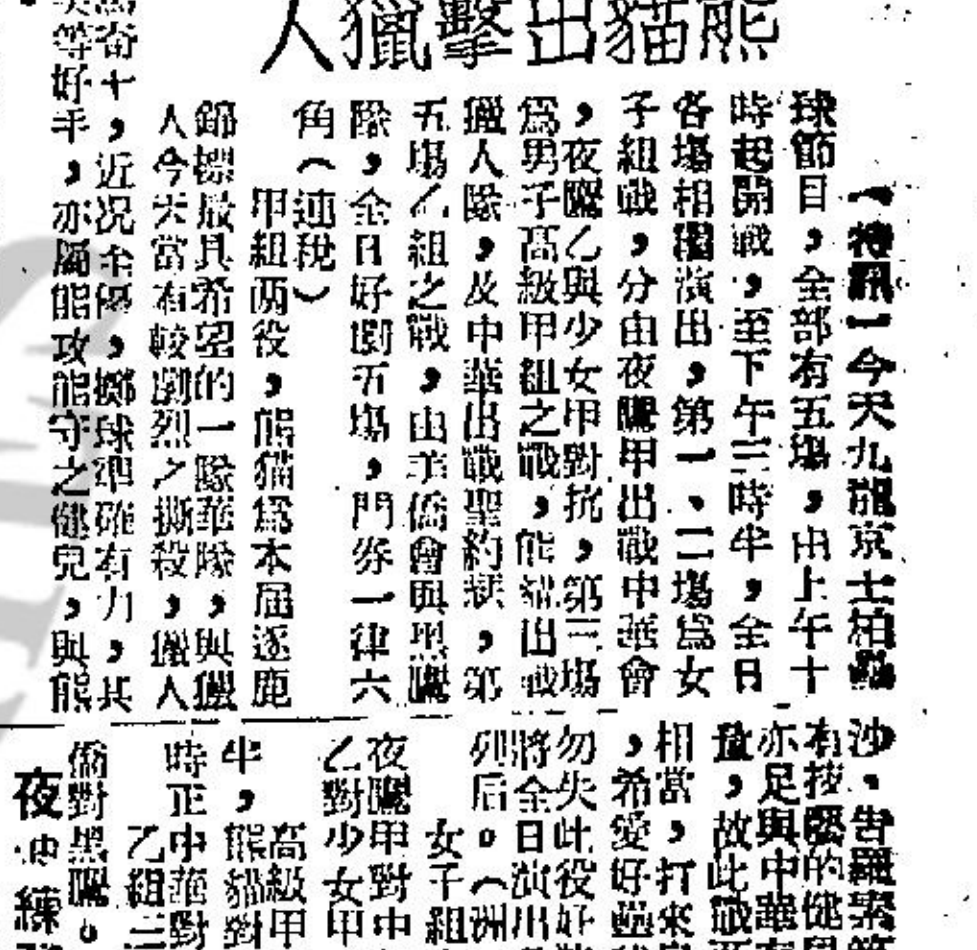 熊貓出擊獵人
(特訊)今天九龍京士柏壘
球節目,全部有五場,由上午十
時起開戰,至下午三時半,全日
各場相繼演出,第一、二場爲女
子組戰,分由夜鷹甲出戰中華會
,夜鷹乙與少女甲對抗,第三場
爲男子高級甲組之戰,熊貓出戰
獵人隊,及中華出戰聖約瑟,第
五場乙組之戰,由華僑會與黑鷹
隊,全日好劇五場,門券一律六
角(連稅)
甲組两役,熊貓爲本屆逐鹿
錦標最具希望的一隊華隊,與獵
人今天當有較劇烈之撕殺,獵人
十,近况至優,擲球準確有力,其
等好手,亦屬能攻能守之健兒,與熊
沙、告羅素
有按的健
亦足與中華
量,故此戰
相當,打來
,希愛好壘
勿失此役好
將全日演出
列后。(洲
女子組
夜鷹甲對中
乙對少女甲
高級甲
半,熊貓對
時正中華對
乙組三
僑對黑鷹。
夜
冲練